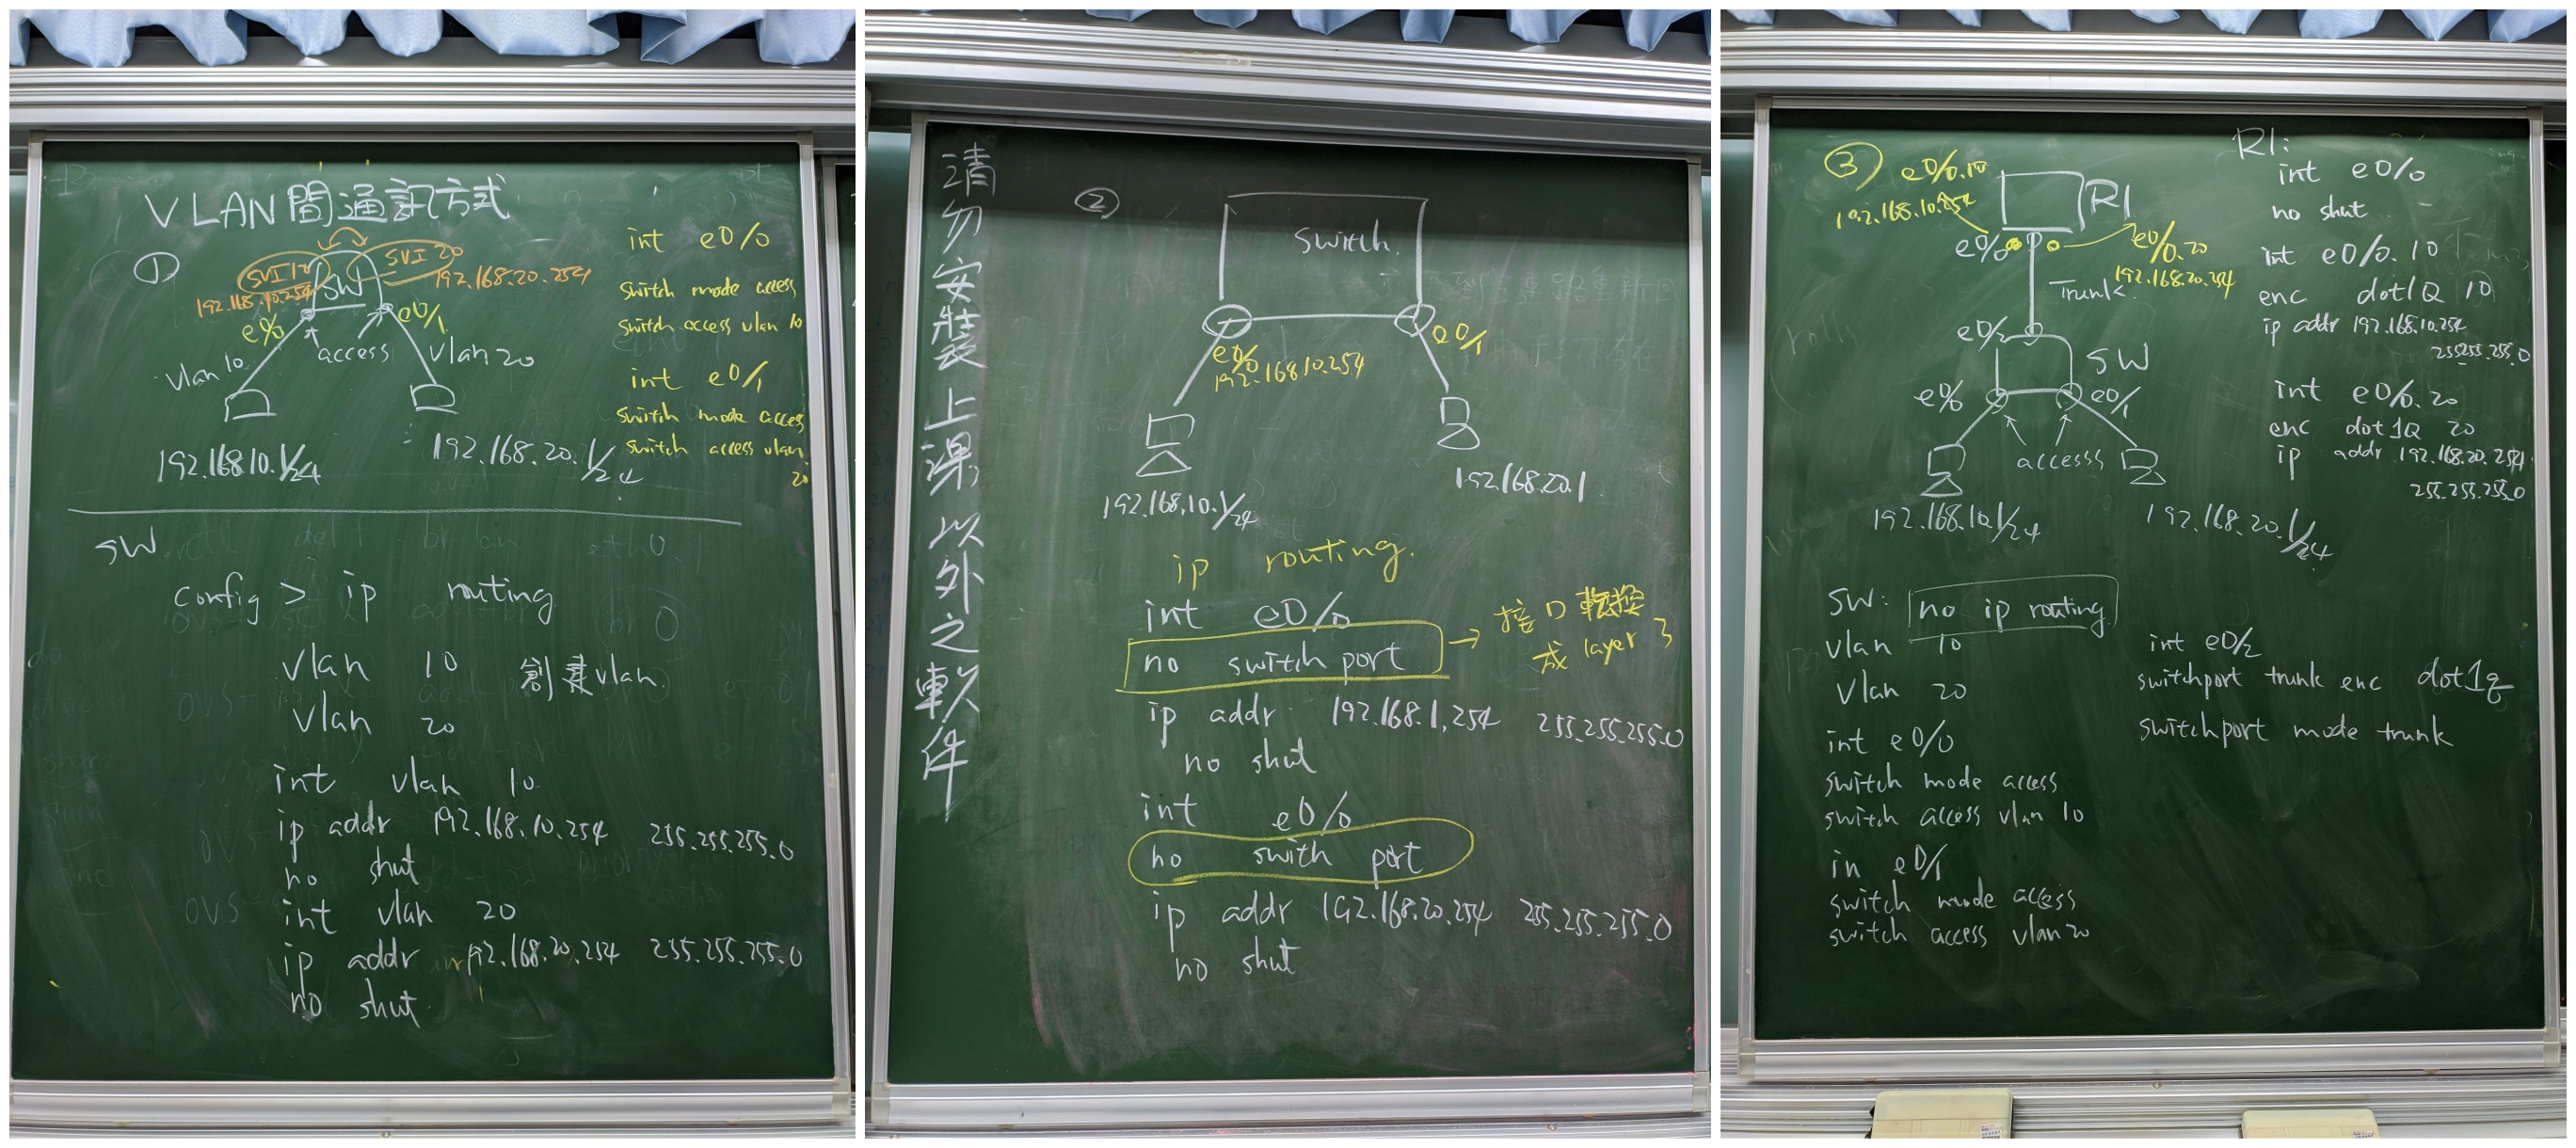 VLAN間通訊方式
①
SVI 10
SVI 20
192.168.10.254
192.168.20.254
SW
e0/0
e0/1
access
vlan 10
vlan 20
192.168.10.1/24
192.168.20.1/24
int e0/0
switch mode access
switch access vlan 10
int e0/1
switch mode access
switch access vlan
20
SW
config > ip routing
vlan 10 創建vlan
vlan 20
int vlan 10
ip addr 192.168.10.254 255.255.255.0
no shut
int vlan 20
ip addr 192.168.20.254 255.255.255.0
no shut
請勿安裝上課以外之軟件
②
switch
e0/0
192.168.10.254
e0/1
192.168.10.1/24
192.168.20.1
ip routing
int e0/0
no switch port → 接口轉換
成 layer 3
ip addr 192.168.1.254 255.255.255.0
no shut
int e0/0
no swith port
ip addr 192.168.20.254 255.255.255.0
no shut
③
e0/0.10
192.168.10.254
R1
e0/0
e0/0.20
192.168.20.254
Trunk
e0/2
SW
e0/0
e0/1
accesss
192.168.10.1/24
192.168.20.1/24
R1:
int e0/0
no shut
int e0/0.10
enc dot1Q 10
ip addr 192.168.10.254
255.255.255.0
int e0/0.20
enc dot1Q 20
ip addr 192.168.20.254
255.255.255.0
SW: no ip routing
vlan 10
vlan 20
int e0/0
switch mode access
switch access vlan 10
in e0/1
switch mode access
switch access vlan 20
int e0/2
switchport trunk enc dot1q
switchport mode trunk